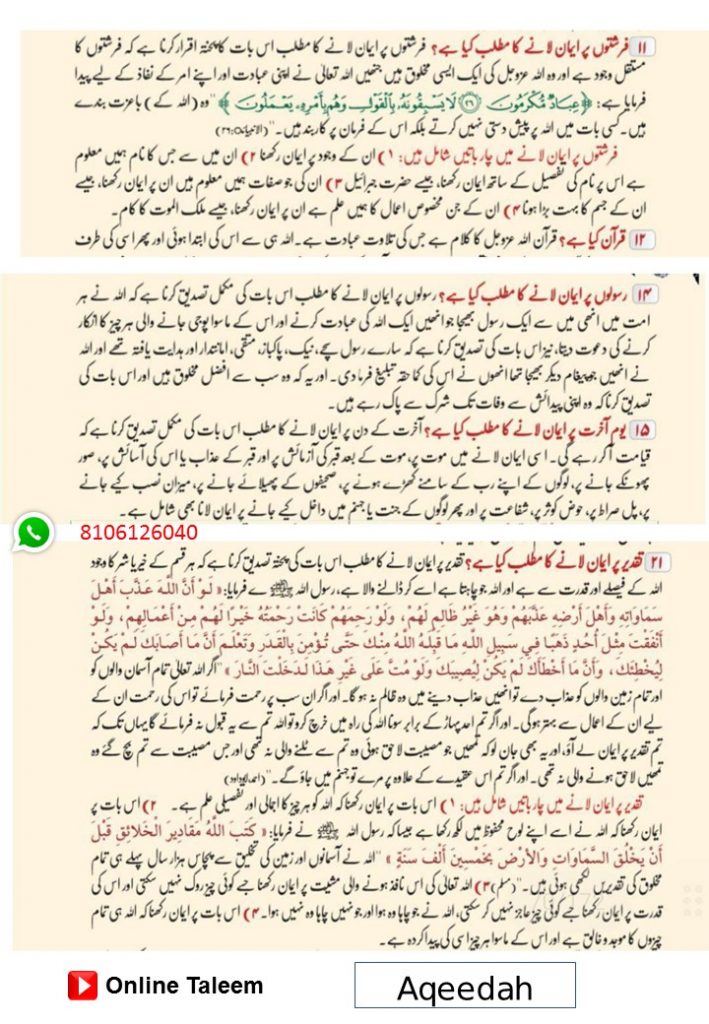 ۱۱ فرشتوں پر ایمان لانے کا مطلب کیا ہے؟ فرشتوں پر ایمان لانے کا مطلب اس بات کا پختہ اقرار کرنا ہے کہ فرشتوں کا
مستقل وجود ہے اور وہ اللہ عزوجل کی ایک ایسی مخلوق ہیں جنھیں اللہ تعالیٰ نے اپنی عبادت اور اپنے امر کے نفاذ کے لیے پیدا
فرمایا ہے: ﴿عِبَادٌ مُّكْرَمُونَ ۝٢٦ لَا يَسْبِقُونَهُ بِالْقَوْلِ وَهُم بِأَمْرِهِ يَعْمَلُونَ﴾ "وہ (اللہ کے) باعزت بندے
ہیں۔ کسی بات میں اللہ پر پیش دستی نہیں کرتے بلکہ اس کے فرمان پر کاربند ہیں۔" (الانبیاء:۲۶)
فرشتوں پر ایمان لانے میں چار باتیں شامل ہیں: ۱) ان کے وجود پر ایمان رکھنا ۲) ان میں سے جس کا نام ہمیں معلوم
ہے اس پر نام کی تفصیل کے ساتھ ایمان رکھنا، جیسے حضرت جبرائیل ۳) ان کی جو صفات ہمیں معلوم ہیں ان پر ایمان رکھنا، جیسے
ان کے جسم کا بہت بڑا ہونا ۴) ان کے جن مخصوص اعمال کا ہمیں علم ہے ان پر ایمان رکھنا، جیسے ملک الموت کا کام۔
۱۲ قرآن کیا ہے؟ قرآن اللہ عزوجل کا کلام ہے جس کی تلاوت عبادت ہے۔ اللہ ہی سے اس کی ابتدا ہوئی اور پھر اسی کی طرف
۱۴ رسولوں پر ایمان لانے کا مطلب کیا ہے؟ رسولوں پر ایمان لانے کا مطلب اس بات کی مکمل تصدیق کرنا ہے کہ اللہ نے ہر
امت میں انھی میں سے ایک رسول بھیجا جو انھیں ایک اللہ کی عبادت کرنے اور اس کے ماسوا پوجی جانے والی ہر چیز کا انکار
کرنے کی دعوت دیتا، نیز اس بات کی تصدیق کرنا ہے کہ سارے رسول سچے، نیک، پاکباز، متقی، امانتدار اور ہدایت یافتہ تھے اور اللہ
نے انھیں جو پیغام دیکر بھیجا تھا انھوں نے اس کی کما حقہ تبلیغ فرما دی۔ اور یہ کہ وہ سب سے افضل مخلوق ہیں اور اس بات کی
تصدیق کرنا کہ وہ اپنی پیدائش سے وفات تک شرک سے پاک رہے ہیں۔
۱۵ یوم آخرت پر ایمان لانے کا مطلب کیا ہے؟ آخرت کے دن پر ایمان لانے کا مطلب اس بات کی مکمل تصدیق کرنا ہے کہ
قیامت آ کر رہے گی۔ اسی ایمان لانے میں موت پر، موت کے بعد قبر کی آزمائش پر اور قبر کے عذاب یا اس کی آسائش پر، صور
پھونکے جانے پر، لوگوں کے اپنے رب کے سامنے کھڑے ہونے پر، صحیفوں کے پھیلائے جانے پر، میزان نصب کیے جانے
پر، پل صراط پر، حوض کوثر پر، شفاعت پر اور پھر لوگوں کے جنت یا جہنم میں داخل کیے جانے پر ایمان لانا بھی شامل ہے۔
8106126040
۲۱ تقدیر پر ایمان لانے کا مطلب کیا ہے؟ تقدیر پر ایمان لانے کا مطلب اس بات کی پختہ تصدیق کرنا ہے کہ ہر قسم کے خیر یا شر کا وجود
اللہ کے فیصلے اور قدرت سے ہے اور اللہ جو چاہتا ہے اسے کر ڈالنے والا ہے، رسول اللہ ﷺ نے فرمایا: «لَوْ أَنَّ اللَّهَ عَذَّبَ أَهْلَ
سَمَاوَاتِهِ وَأَهْلَ أَرْضِهِ عَذَّبَهُمْ وَهُوَ غَيْرُ ظَالِمٍ لَهُمْ، وَلَوْ رَحِمَهُمْ كَانَتْ رَحْمَتُهُ خَيْرًا لَهُمْ مِنْ أَعْمَالِهِمْ، وَلَوْ
أَنْفَقْتَ مِثْلَ أُحُدٍ ذَهَبًا فِي سَبِيلِ اللَّهِ مَا قَبِلَهُ اللَّهُ مِنْكَ حَتَّى تُؤْمِنَ بِالْقَدَرِ وَتَعْلَمَ أَنَّ مَا أَصَابَكَ لَمْ يَكُنْ
لِيُخْطِئَكَ، وَأَنَّ مَا أَخْطَأَكَ لَمْ يَكُنْ لِيُصِيبَكَ وَلَوْ مُتَّ عَلَى غَيْرِ هَذَا لَدَخَلْتَ النَّارَ» "اگر اللہ تعالیٰ تمام آسمان والوں کو
اور تمام زمین والوں کو عذاب دے تو انھیں عذاب دینے میں وہ ظالم نہ ہو گا۔ اور اگر ان سب پر رحمت فرمائے تو اس کی رحمت ان کے
لیے ان کے اعمال سے بہتر ہوگی۔ اور اگر تم احد پہاڑ کے برابر سونا اللہ کی راہ میں خرچ کرو تو اللہ تم سے یہ قبول نہ فرمائے گا یہاں تک کہ
تم تقدیر پر ایمان لے آؤ، اور یہ بھی جان لو کہ تمھیں جو مصیبت لاحق ہوئی وہ تم سے ٹلنے والی نہ تھی اور جس مصیبت سے تم بچ گئے وہ
تمھیں لاحق ہونے والی نہ تھی۔ اور اگر تم اس عقیدے کے علاوہ پر مرے تو جہنم میں جاؤ گے۔" (احمد، ابوداود)
تقدیر پر ایمان لانے میں چار باتیں شامل ہیں: ۱) اس بات پر ایمان رکھنا کہ اللہ کو ہر چیز کا اجمالی اور تفصیلی علم ہے۔ ۲) اس بات پر
ایمان رکھنا کہ اللہ نے اسے اپنے لوح محفوظ میں لکھ رکھا ہے جیسا کہ رسول اللہ ﷺ نے فرمایا: «كَتَبَ اللَّهُ مَقَادِيرَ الْخَلَائِقِ قَبْلَ
أَنْ يَخْلُقَ السَّمَاوَاتِ وَالْأَرْضَ بِخَمْسِينَ أَلْفَ سَنَةٍ» "اللہ نے آسمانوں اور زمین کی تخلیق سے پچاس ہزار سال پہلے ہی تمام
مخلوق کی تقدیریں لکھی ہوئی ہیں۔" (مسلم) ۳) اللہ تعالیٰ کی اس نافذ ہونے والی مشیت پر ایمان رکھنا جسے کوئی چیز روک نہیں سکتی اور اس کی
قدرت پر ایمان رکھنا جسے کوئی چیز عاجز نہیں کر سکتی، اللہ نے جو چاہا وہ ہوا اور جو نہیں چاہا وہ نہیں ہوا۔ ۴) اس بات پر ایمان رکھنا کہ اللہ ہی تمام
چیزوں کا موجد و خالق ہے اور اس کے ماسوا ہر چیز اسی کی پیدا کردہ ہے۔
Online Taleem
Aqeedah